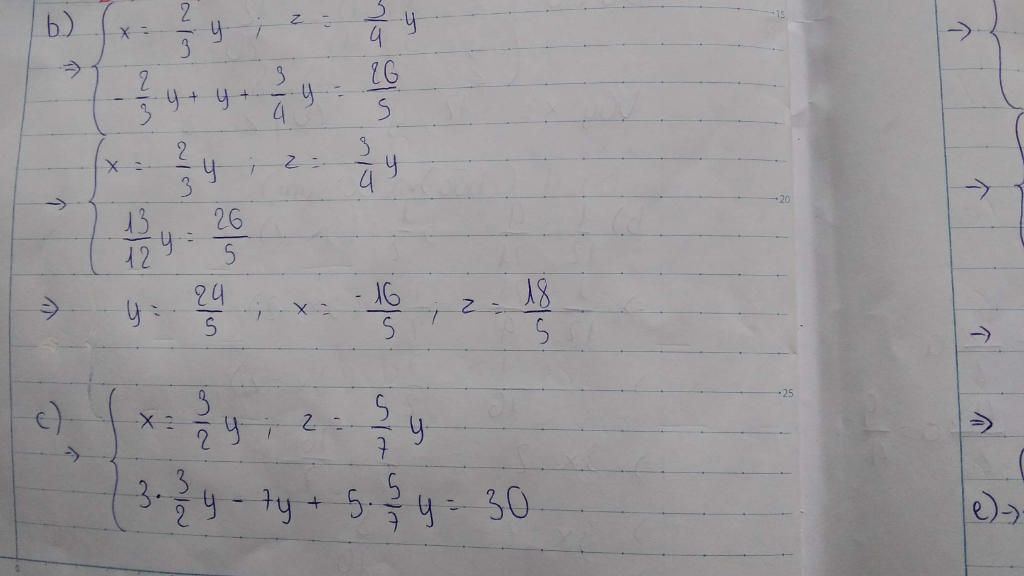 b) ⇒ { x = 2/3 y ; z = 3/4 y
- 2/3 y + y + 3/4 y = 26/5
→ { x = 2/3 y ; z = 3/4 y
13/12 y = 26/5
⇒ y = 24/5 ; x = -16/5 ; z = 18/5
c) ⇒ { x = 3/2 y ; z = 5/7 y
3 · 3/2 y - 7y + 5 · 5/7 y = 30
15
20
25
→ {
→ {
→
⇒
e) → {